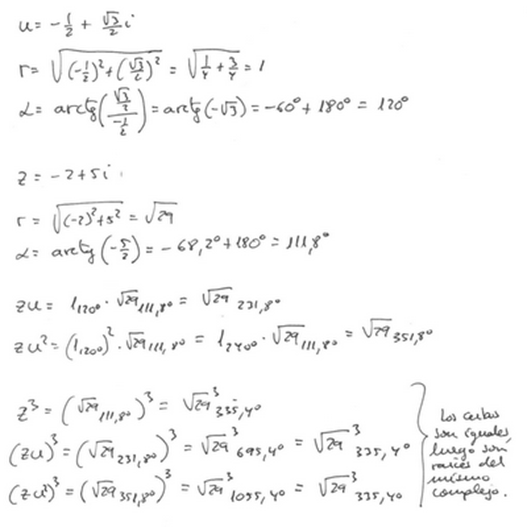 u = -1/2 + √3/2 i
r = √((-1/2)² + (√3/2)²) = √(1/4 + 3/4) = 1
α = arctg((√3/2)/(-1/2)) = arctg(-√3) = -60° + 180° = 120°
z = -2 + 5i
r = √((-2)² + 5²) = √29
α = arctg(-5/2) = -68,2° + 180° = 111,8°
zu = 1₁₂₀° · √29₁₁₁,₈° = √29 ₂₃₁,₈°
zu² = (1₁₂₀°)² · √29₁₁₁,₈° = 1₂₄₀° · √29₁₁₁,₈° = √29₃₅₁,₈°
z³ = (√29₁₁₁,₈°)³ = √29³₃₃₅,₄°
(zu)³ = (√29₂₃₁,₈°)³ = √29³₆₉₅,₄° = √29³₃₃₅,₄°
(zu²)³ = (√29₃₅₁,₈°)³ = √29³₁₀₅₅,₄° = √29³₃₃₅,₄°
Los cubos
son iguales,
luego son
raíces del
mismo
complejo.